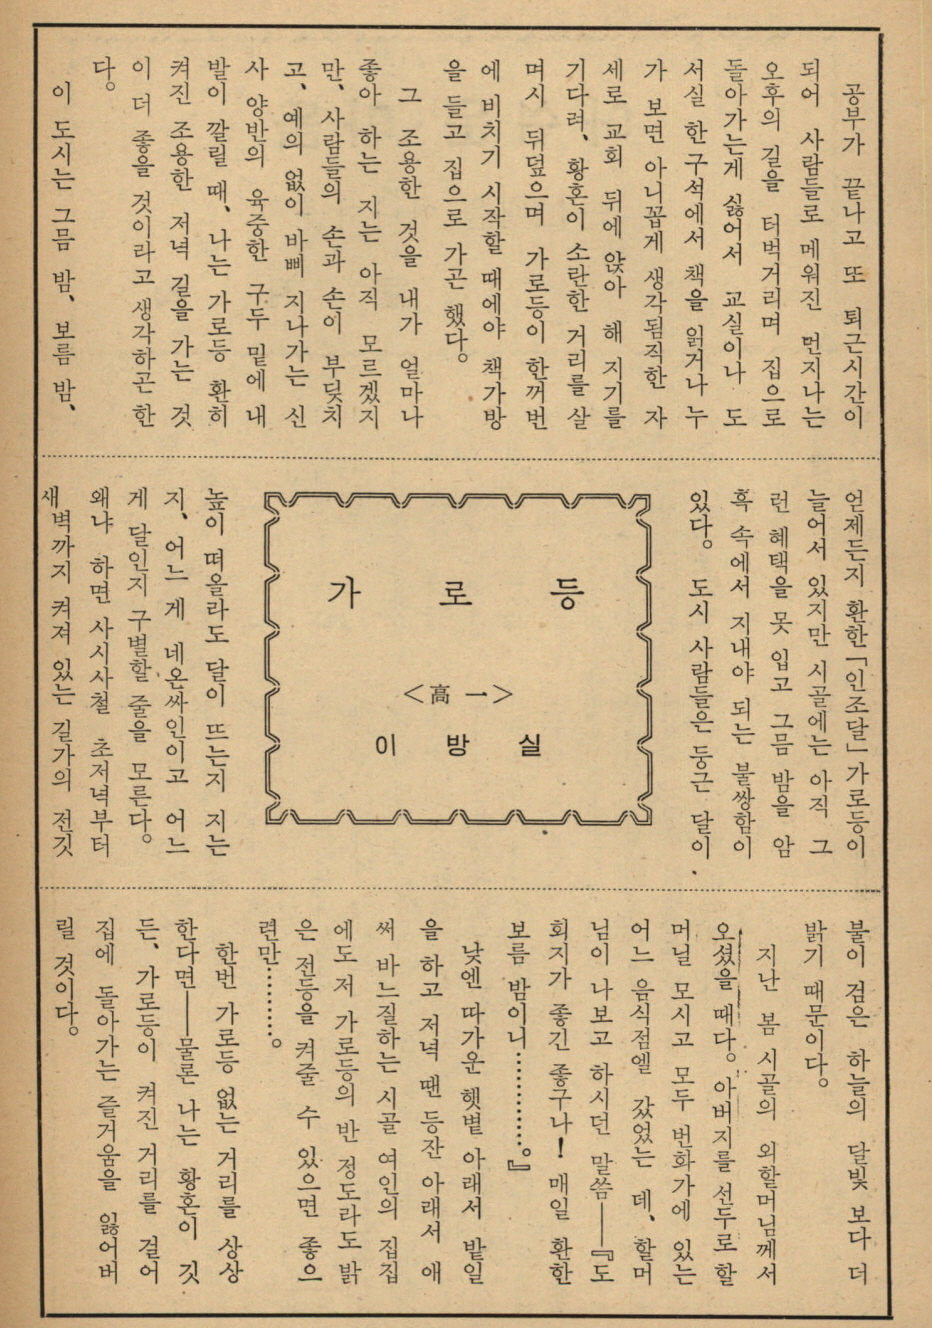 가 로 등
<高 一>
이 방 실
공부가 끝나고 또 퇴근시간이
되어 사람들로 메워진 먼지나는
오후의 길을 터벅거리며 집으로
돌아가는게 싫어서 교실이나 도
서실 한구석에서 책을 읽거나 누
가 보면 아니꼽게 생각됨직한 자
세로 교회 뒤에 앉아 해 지기를
기다려, 황혼이 소란한 거리를 살
며시 뒤덮으며 가로등이 한꺼번
에 비치기 시작할 때에야 책가방
을 들고 집으로 가곤 했다。
그 조용한 것을 내가 얼마나
좋아 하는 지는 아직 모르겠지
만、사람들의 손과 손이 부딪치
고、예의 없이 바삐 지나가는 신
사 양반의 육중한 구두 밑에 내
발이 깔릴 때、나는 가로등 환히
켜진 조용한 저녁 길을 가는 것
이 더 좋을 것이라고 생각하곤 한
다。
이 도시는 그믐 밤、보름 밤、
언제든지 환한「인조달」가로등이
늘어서 있지만 시골에는 아직 그
런 혜택을 못 입고 그믐 밤을 암
흑 속에서 지내야 되는 불쌍함이
있다。 도시 사람들은 둥근 달이
높이 떠올라도 달이 뜨는지 지는
지、어느 게 네온싸인이고 어느
게 달인지 구별할 줄을 모른다。
왜냐 하면 사시사철 초저녁부터
새벽까지 켜져 있는 길가의 전깃
불이 검은 하늘의 달빛 보다 더
밝기 때문이다。
지난 봄 시골의 외할머님께서
오셨을 때다。아버지를 선두로 할
머닐 모시고 모두 번화가에 있는
어느 음식점엘 갔었는 데、할머
님이 나보고 하시던 말씀──『도
회지가 좋긴 좋구나! 매일 환한
보름 밤이니…………。』
낮엔 따가운 햇볕 아래서 밭일
을 하고 저녁 땐 등잔 아래서 애
써 바느질하는 시골 여인의 집집
에도 저 가로등의 반 정도라도 밝
은 전등을 켜줄 수 있으면 좋으
련만…………。
한번 가로등 없는 거리를 상상
한다면──물론 나는 황혼이 깃
든、가로등이 켜진 거리를 걸어
집에 돌아가는 즐거움을 잃어버
릴 것이다。